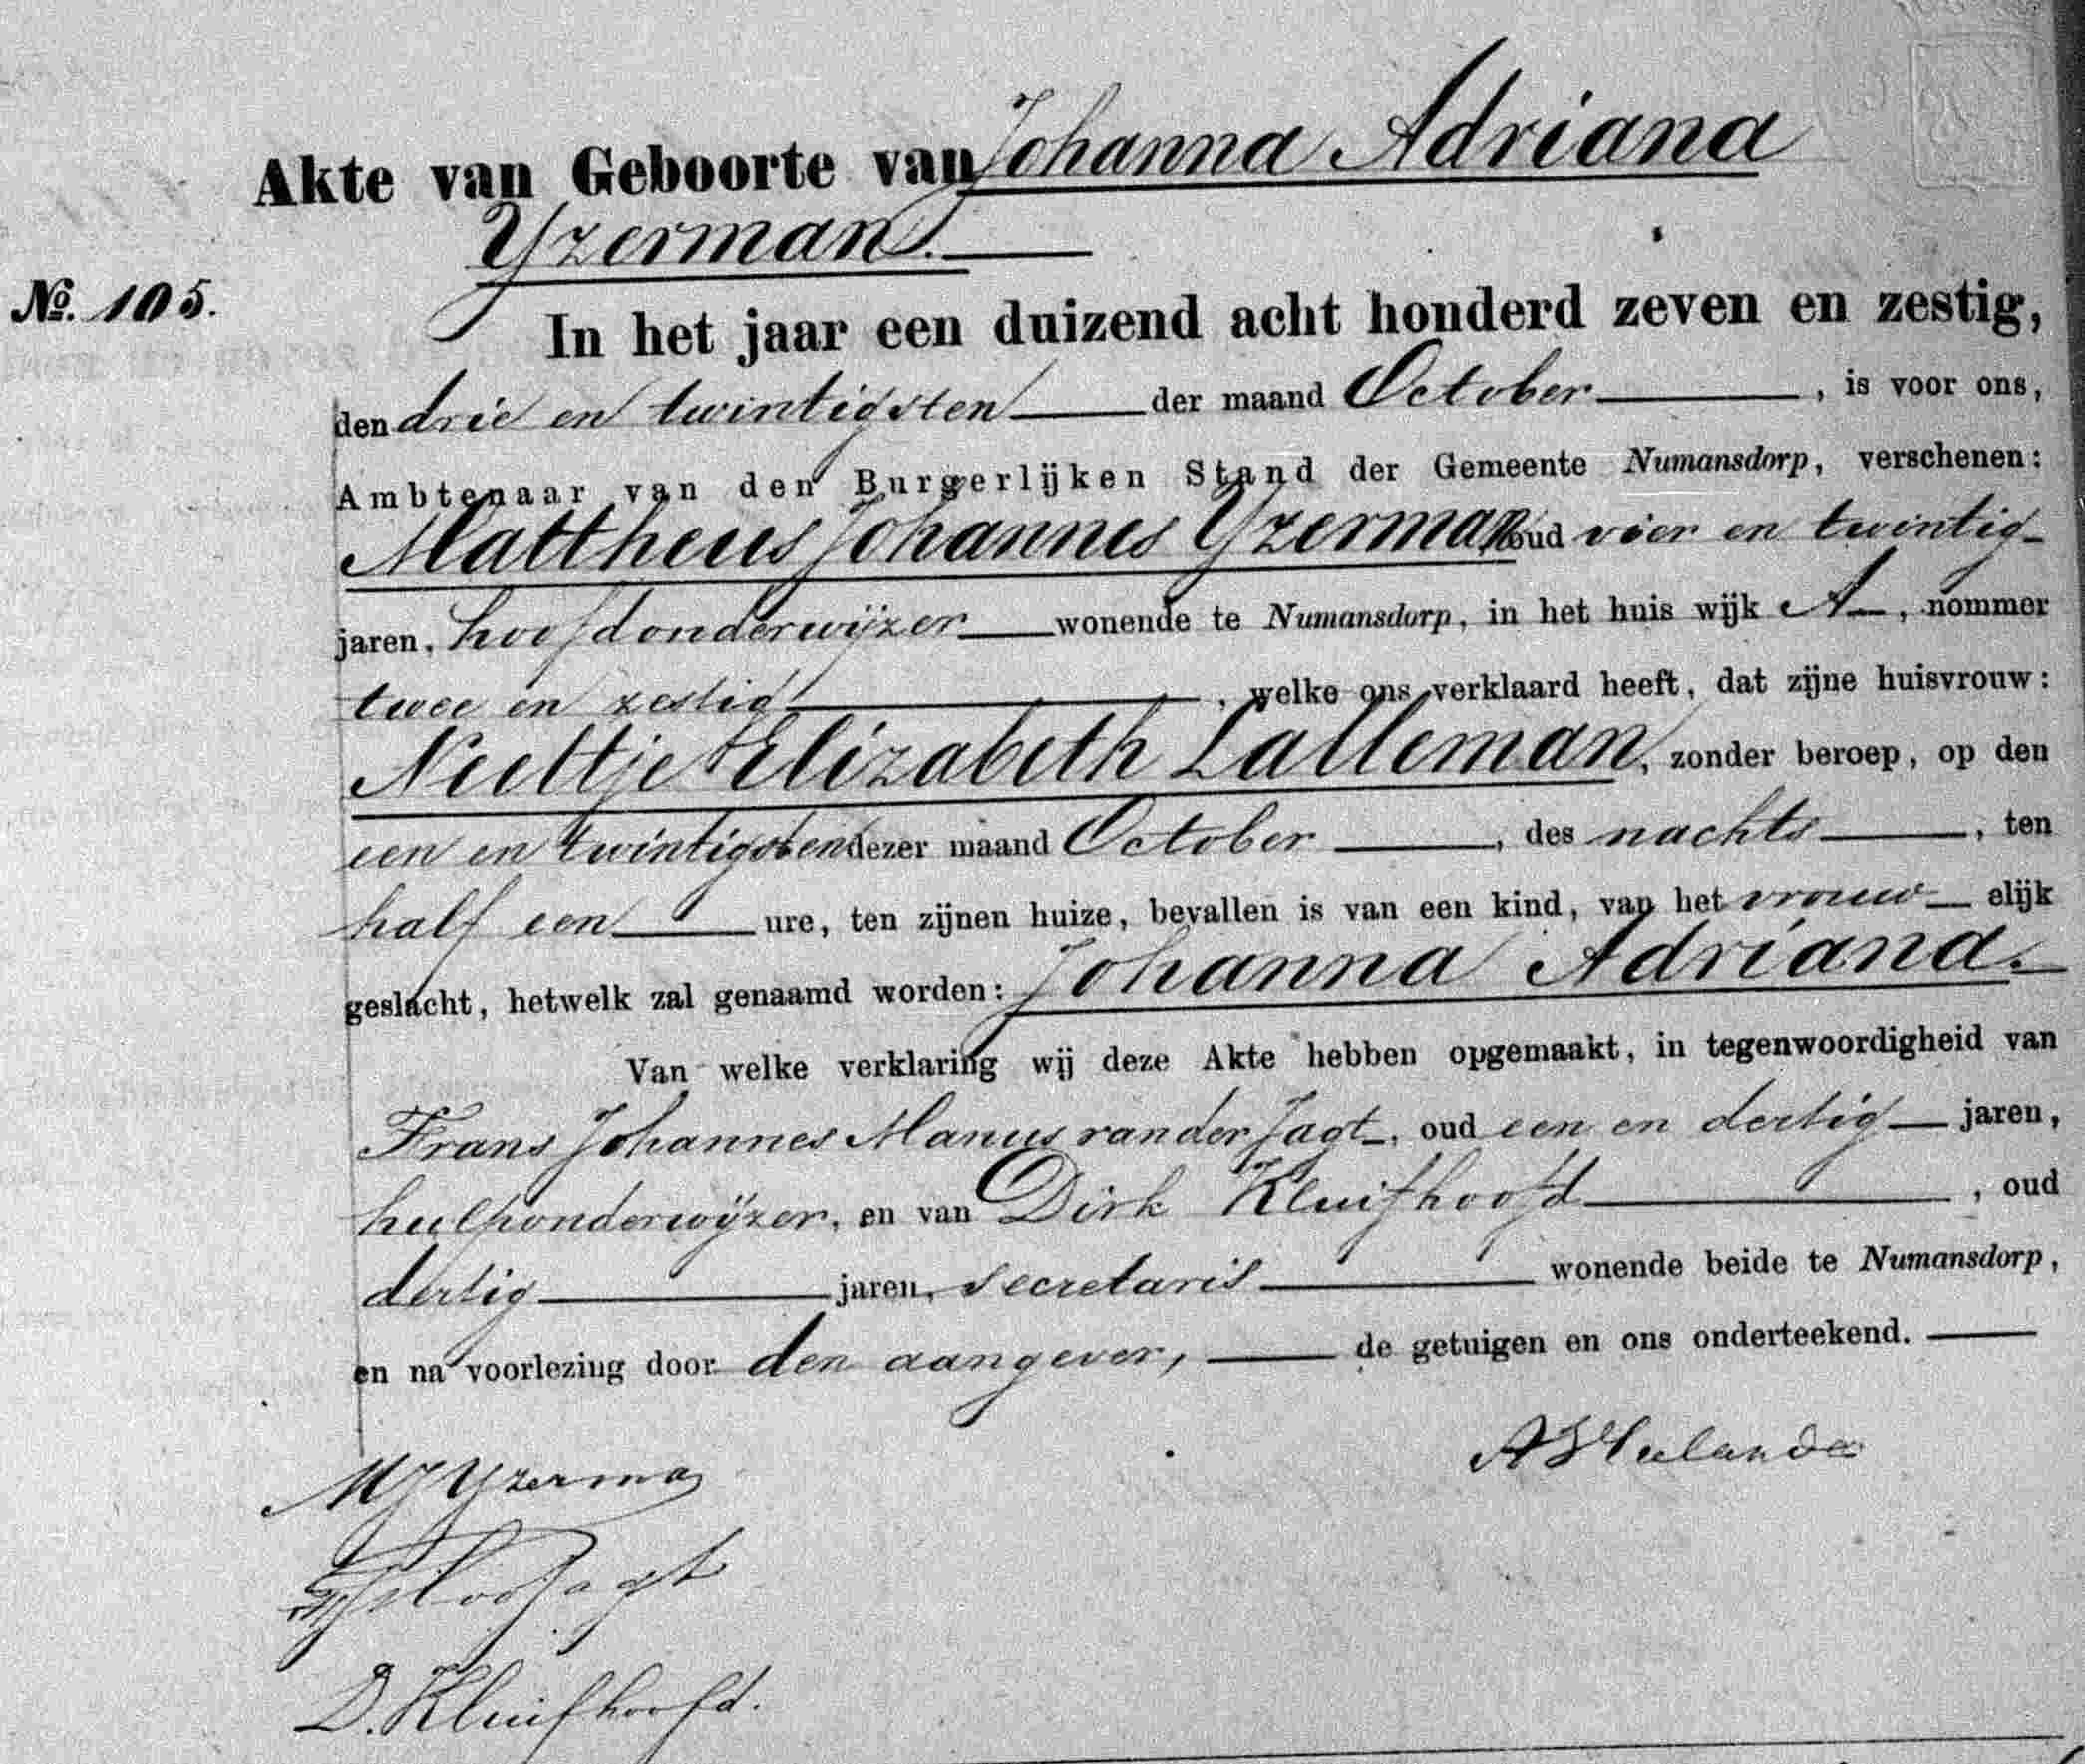 Akte van Geboorte van Johanna Adriana
Yzerman.
No. 105.
In het jaar een duizend acht honderd zeven en zestig,
den drie en twintigsten der maand October, is voor ons,
Ambtenaar van den Burgerlijken Stand der Gemeente Numansdorp, verschenen:
Mattheus Johannes Yzerman, oud vier en twintig
jaren, hoofdonderwijzer wonende te Numansdorp, in het huis wijk A, nommer
twee en zestig, welke ons verklaard heeft, dat zijne huisvrouw:
Neeltje Elizabeth Lalleman, zonder beroep, op den
een en twintigsten dezer maand October, des nachts, ten
half een ure, ten zijnen huize, bevallen is van een kind, van het vrouw elijk
geslacht, hetwelk zal genaamd worden: Johanna Adriana.
Van welke verklaring wij deze Akte hebben opgemaakt, in tegenwoordigheid van
Frans Johannes Manus van der Jagt, oud een en dertig jaren,
hulponderwijzer, en van Dirk Kluifhoofd, oud
dertig jaren, secretaris wonende beide te Numansdorp,
en na voorlezing door den aangever, de getuigen en ons onderteekend.
MJYzerman
D. Kluifhoofd.